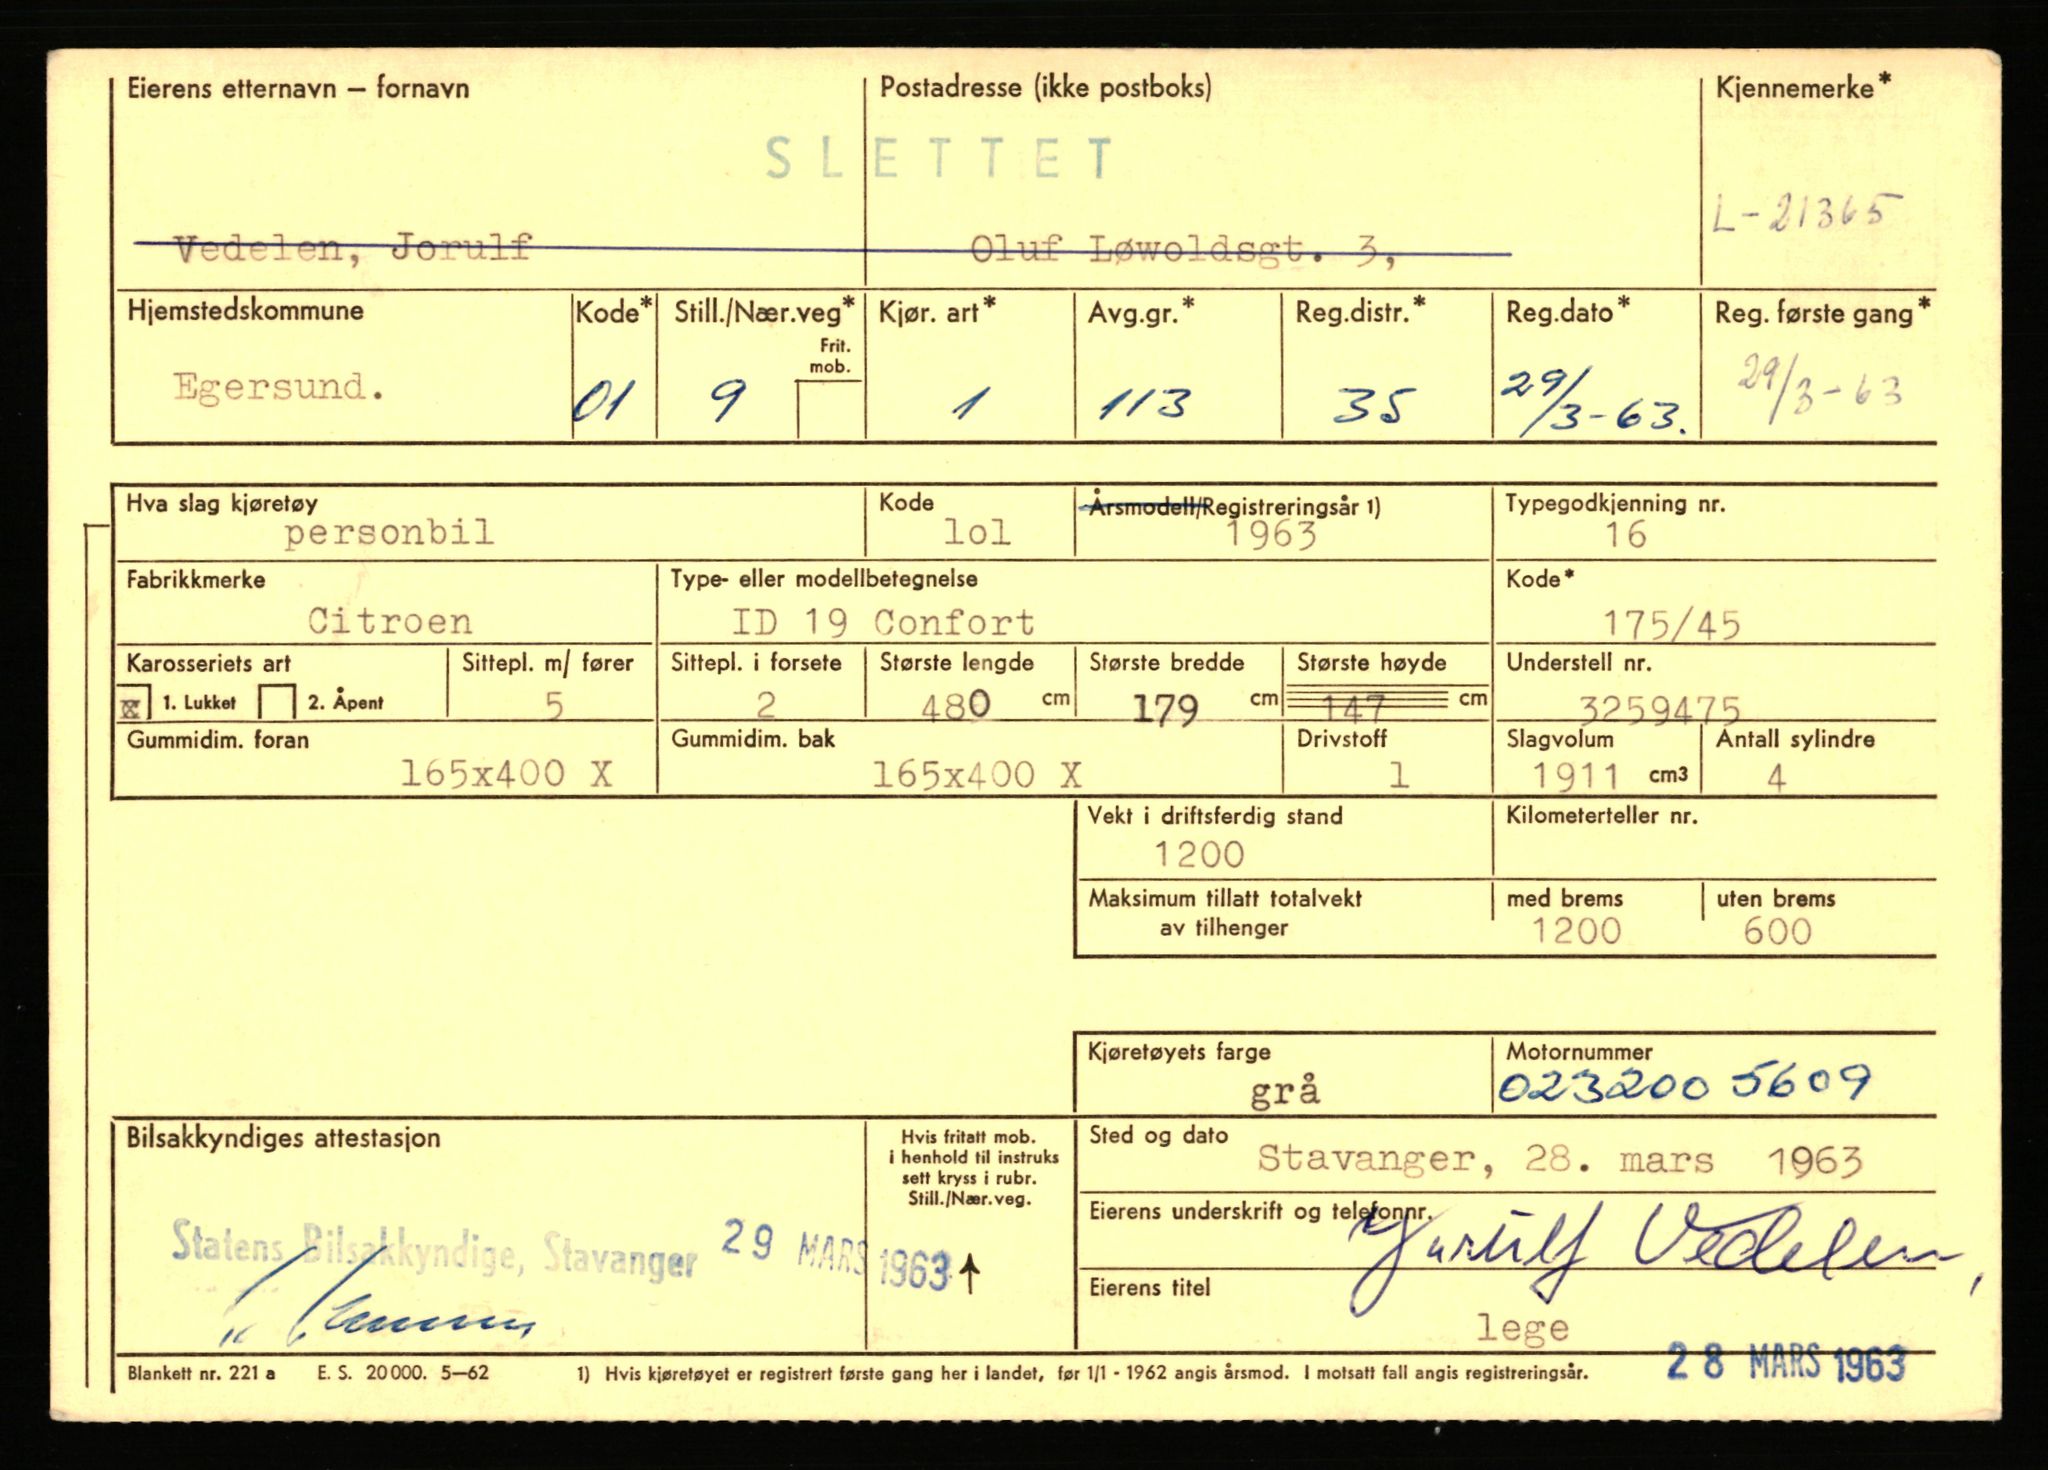 Eierens etternavn – fornavn Postadresse (ikke postboks) Kjennemerke*
SLETTET
L-21365
Vedelen, Jorulf Oluf Løwoldsgt. 3,
Hjemstedskommune Kode* Still./Nær.veg* Kjør. art* Avg.gr.* Reg.distr.* Reg.dato* Reg. første gang*
Frit.
mob.
Egersund. 01 9 1 113 35 29/3-63. 29/3-63
Hva slag kjøretøy Kode Årsmodell/Registreringsår 1) Typegodkjenning nr.
personbil lol 1963 16
Fabrikkmerke Type- eller modellbetegnelse Kode*
Citroen ID 19 Confort 175/45
Karosseriets art Sittepl. m/ fører Sittepl. i forsete Største lengde Største bredde Største høyde Understell nr.
x 1. Lukket 2. Åpent 5 2 480 cm 179 cm 147 cm 3259475
Gummidim. foran Gummidim. bak Drivstoff Slagvolum Antall sylindre
165x400 X 165x400 X 1 1911 cm3 4
Vekt i driftsferdig stand Kilometerteller nr.
1200
Maksimum tillatt totalvekt med brems uten brems
av tilhenger 1200 600
Kjøretøyets farge Motornummer
grå 0232005609
Bilsakkyndiges attestasjon
Hvis fritatt mob.
i henhold til instruks
sett kryss i rubr.
Still./Nær.veg.
Sted og dato
Stavanger, 28. mars 1963
Eierens underskrift og telefonnr.
Jorulf Vedelen,
Statens Bilsakkyndige, Stavanger 29 MARS 1963 ↑
Eierens titel
lege
28 MARS 1963
Blankett nr. 221 a E. S. 20000. 5–62 1) Hvis kjøretøyet er registrert første gang her i landet, før 1/1 - 1962 angis årsmod. I motsatt fall angis registreringsår.